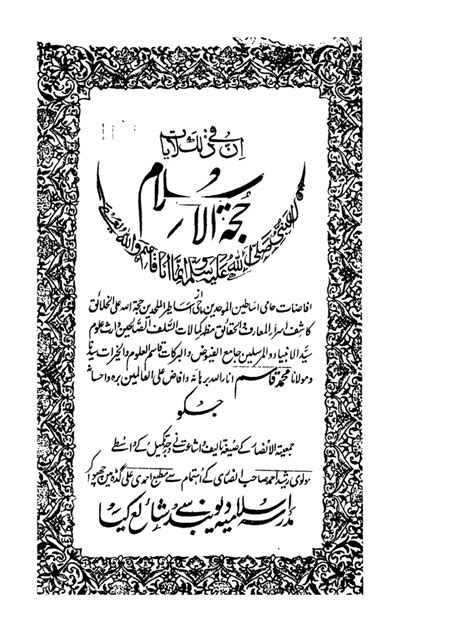 ان فی ذلک لآیات
حجۃ الاسلام
قال النبی صلی اللہ علیہ وسلم انما انا قاسم واللہ یعطی
از
افاضات حامی اساطین الموحدین ماحی اساطیر الملحدین حجۃ اللہ علی الخلائق
کاشف اسرار المعارف والحقائق مظہر کمالات السلف الصالحین وارث علوم
سید الانبیاء والمرسلین جامع الفیوض والبرکات قاسم العلوم والخیرات سیدنا
ومولانا محمد قاسم انار اللہ برہانہ وافاض علی العالمین برہ واحسانہ
جسکو
جمعیۃ الانصار کے صیغہ تالیف واشاعت نے وجہ تکمیل کے واسطے
مولوی رشید احمد صاحب انصاری کے اہتمام سے مطبع احمدی علی گڈہ مین چھپوا کر
مدرسہ اسلامیہ دیوبند سے شائع کیا